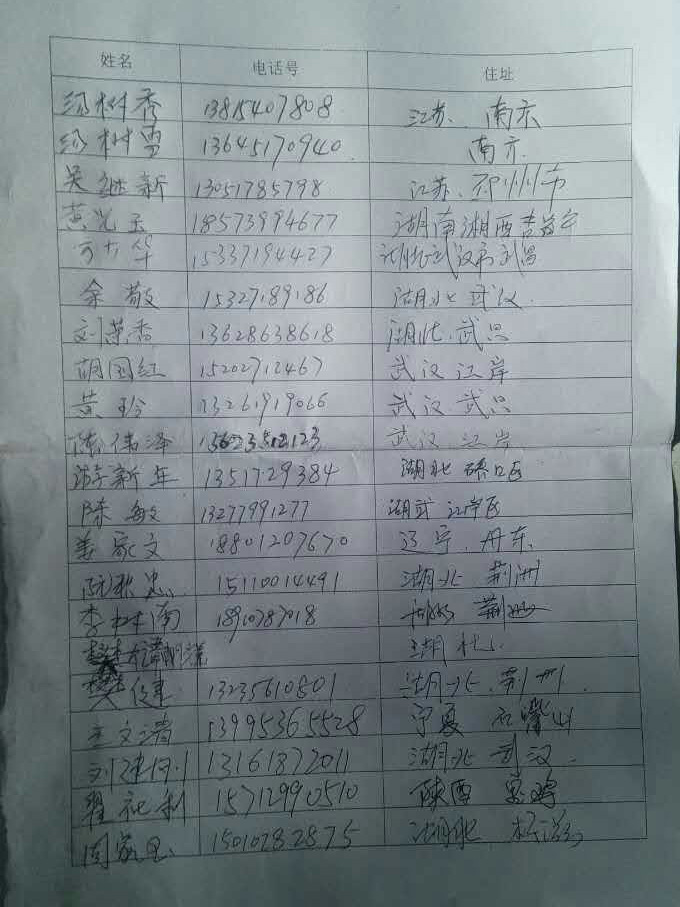 姓名 电话号 住址
树秀 13815407808 江苏、南京
树雪 13645170940 南京
吴继新 13051785798 江苏、邳州市
黄光玉 18573994677 湖南湘西吉首市
华 15337194427 湖北武汉市武昌
余敬 15327189186 湖北武汉
刘莲香 13628638618 湖北、武昌
胡国红 15202712467 武汉江岸
黄珍 13261919066 武汉武昌
陈伟泽 武汉江岸
游新年 1351729384 湖北硚口区
陈敏 13277991277 湖武江岸区
姜家文 18801207670 辽宁、丹东
阮秋忠 15110014491 湖北荆洲
李林南 18910787018
湖北
樊健 13235610801 湖北、荆州
王文清 13995365528 宁夏石嘴山
刘建 13161872011 湖北武汉
翟社利 15712990510 陕西宝鸡
周家 15010782875 湖北